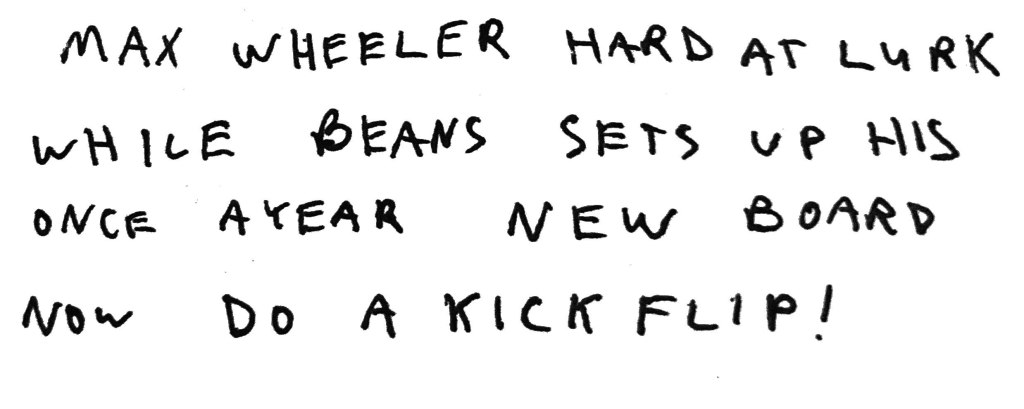 MAX WHEELER HARD AT LURK
WHILE BEANS SETS UP HIS
ONCE AYEAR NEW BOARD
NOW DO A KICK FLIP!